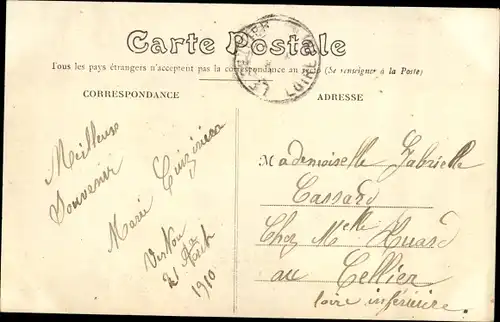 Carte Postale
Tous les pays étrangers n'acceptent pas la correspondance au recto (Se renseigner à la Poste)
CORRESPONDANCE
ADRESSE
LE CELLIER
LOIRE
Meilleur
Souvenir
Marie
21
1910
Mademoiselle Gabrielle
Cassard
Chez Melle Huard
au Cellier
Loire inférieure.